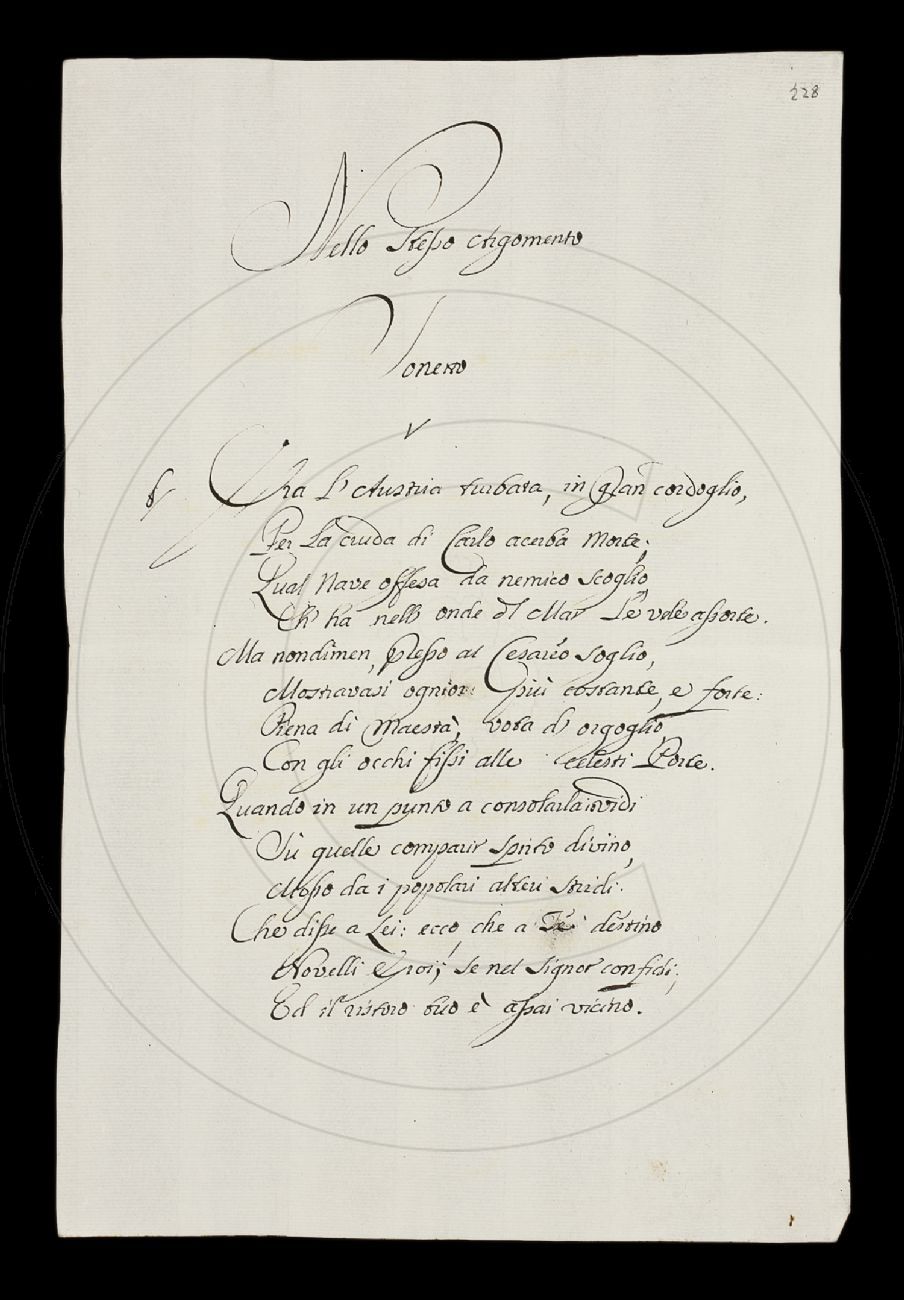 228
Nello stesso Argomento
Sonetto
V
Era L' Austria turbata, in gran cordoglio,
Per La cruda di Carlo acerba Morte;
Qual Nave offesa da nemico scoglio
Ch' ha nell' onde del Mar Le vele assorte.
Ma nondimen, presso al Cesareo soglio,
Mostravasi ognior più costante, e forte:
Piena di Maestà, vota d' orgoglio,
Con gli occhi fissi alle celesti Porte.
Quando in un punto a consolarla vidi
Sù quelle comparir spirto divino,
Mosso da i popolari alteri stridi.
Che disse a Lei: ecco, che a Te destino
Novelli Eroi, se nel Signor confidi;
Ed il ristoro tuo è assai vicino.